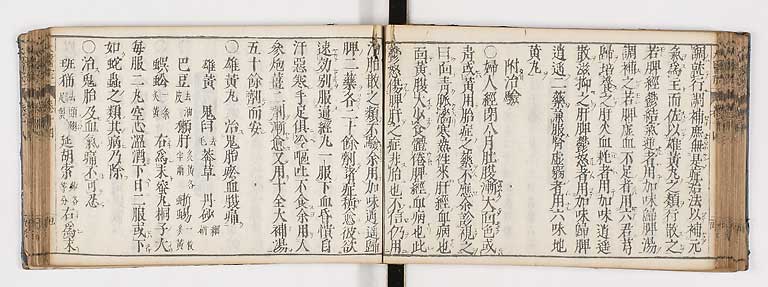 調暫行調補庶無是症治法以補元
氣爲主而佐以雄黃丸之類行散之
若脾經鬱結氣逆者用加味歸脾湯
調補之若脾虛血不足者用六君芎
歸培養之肝火血耗者用加味逍遙
散滋抑之肝脾鬱怒者用加味歸脾
逍遙二藥兼服腎虛竅者用六味地
黃丸
附治驗
○婦人經閉八月肚腹漸大面色或
青或黃用胎症之藥不應余診視之
曰面青脈澁寒熱往來肝經血病也
面黃腹大少食體倦脾經血病也此
鬱怒傷脾肝之症非胎也不信仍用
治胎散之類不驗余用加味逍遙歸
脾二藥各二十餘劑諸症稍愈彼欲
速効別服通經丸一服下血昏憒自
汗惡寒手足俱冷嘔吐不食余用人
參炮薑二劑漸愈又用十全大補湯
五十餘劑而安
○雄黃丸 治鬼胎瘀血腹痛
雄黃 鬼臼 莽草 丹砂
巴豆 獺肝 蜥蜴
蜈蚣 右爲末蜜丸桐子大
每服二丸空心溫酒下日二服或下
如蛇蟲之類其病乃除
○治鬼胎及血氣痛不可忍
班猫 延胡索 右爲末